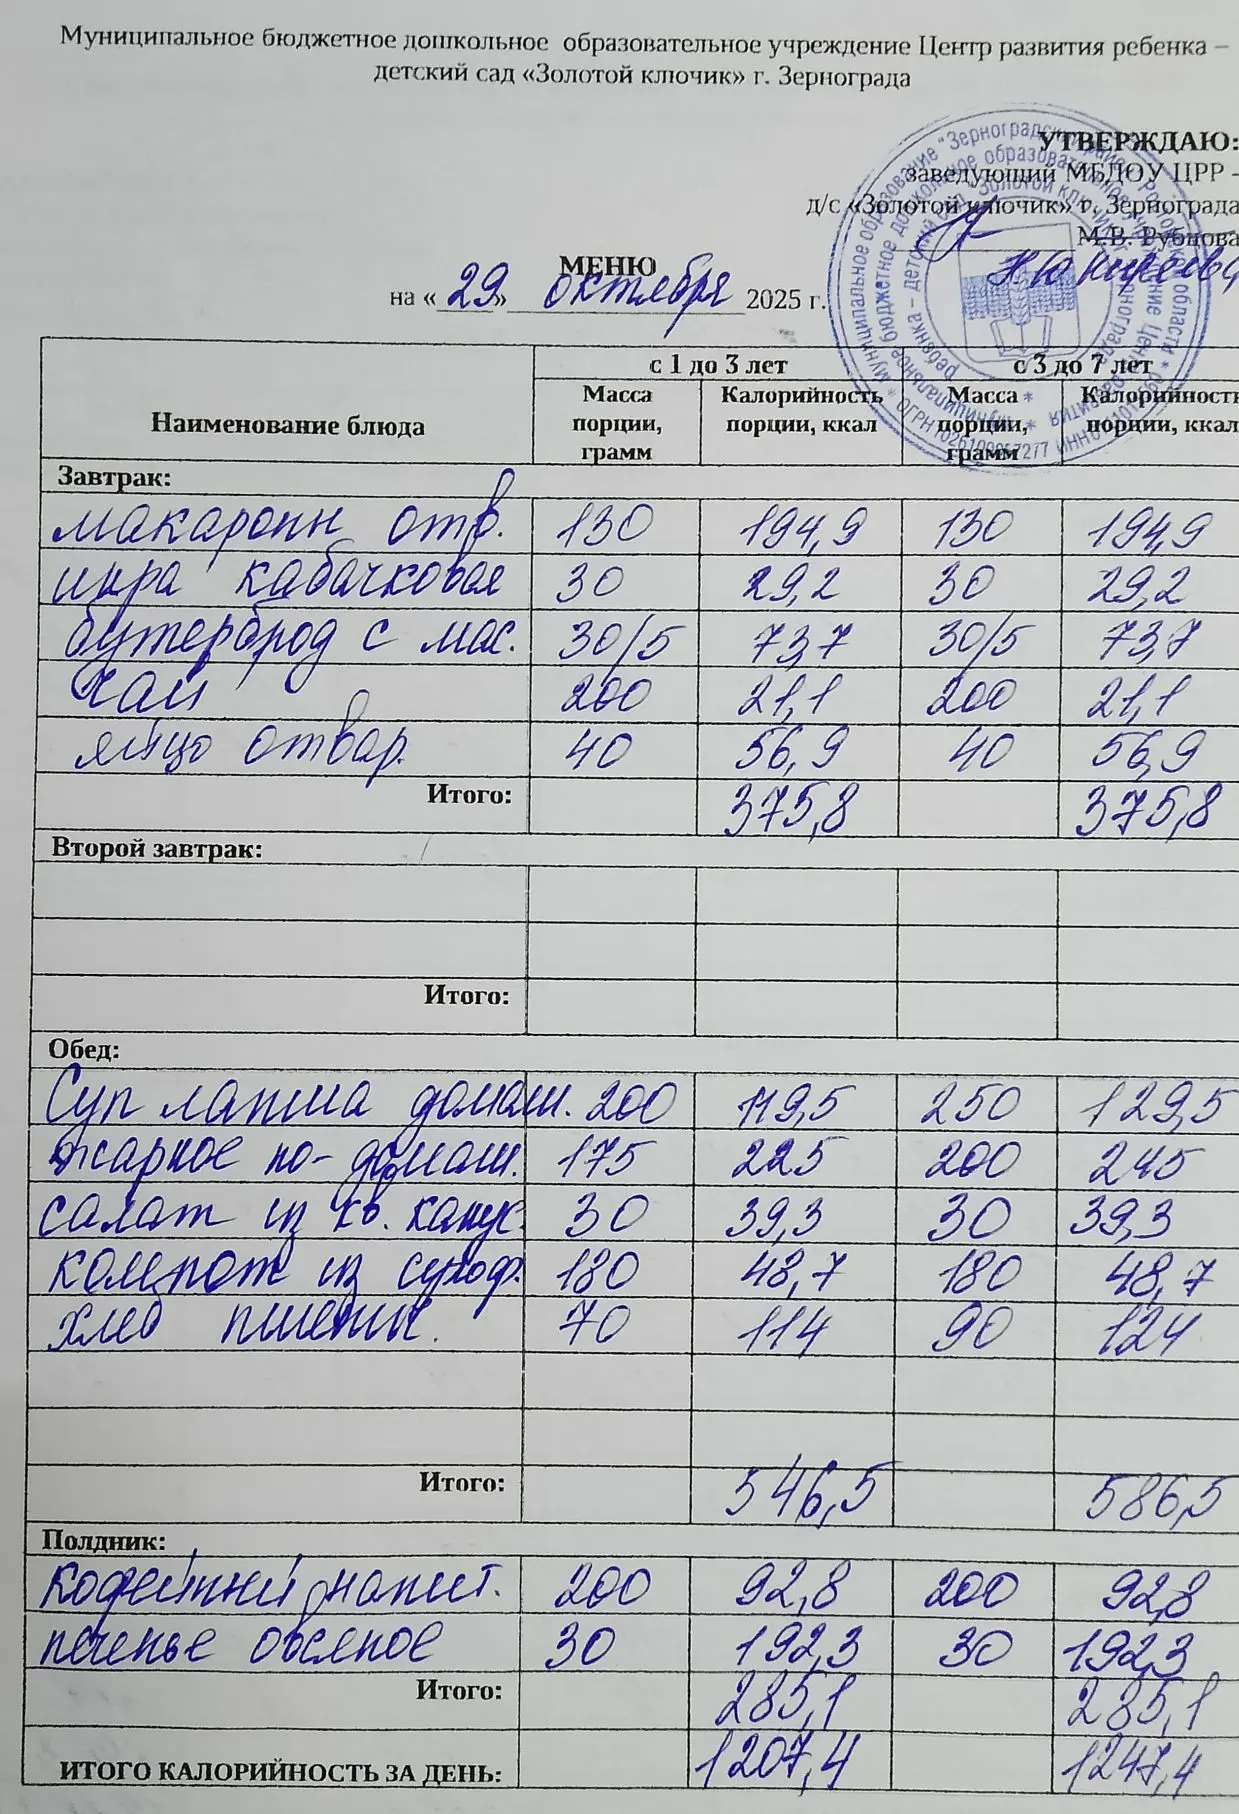 Муниципальное бюджетное дошкольное образовательное учреждение Центр развития ребенка –
детский сад «Золотой ключик» г. Зернограда
УТВЕРЖДАЮ:
заведующий МБДОУ ЦРР -
д/с «Золотой ключик» г. Зернограда
М.В. Рубцова
МЕНЮ
на « 29 » октября 2025 г.
Наименование блюда с 1 до 3 лет с 3 до 7 лет
Масса порции, грамм Калорийность порции, ккал Масса порции, грамм Калорийность порции, ккал
Завтрак:
макароны отв. 130 194,9 130 194,9
икра кабачковая 30 29,2 30 29,2
бутерброд с мас. 30/5 73,7 30/5 73,7
чай 200 21,1 200 21,1
яйцо отвар. 40 56,9 40 56,9
Итого: 375,8 375,8
Второй завтрак:
Итого:
Обед:
Суп лапша домаш. 200 119,5 250 129,5
жаркое по-домаш. 175 225 200 245
салат из кв. капус. 30 39,3 30 39,3
компот из сухоф. 180 48,7 180 48,7
хлеб пшенич. 70 114 90 124
Итого: 546,5 586,5
Полдник:
кофейный напит. 200 92,8 200 92,8
печенье овсяное 30 192,3 30 192,3
Итого: 285,1 285,1
ИТОГО КАЛОРИЙНОСТЬ ЗА ДЕНЬ: 1207,4 1247,4